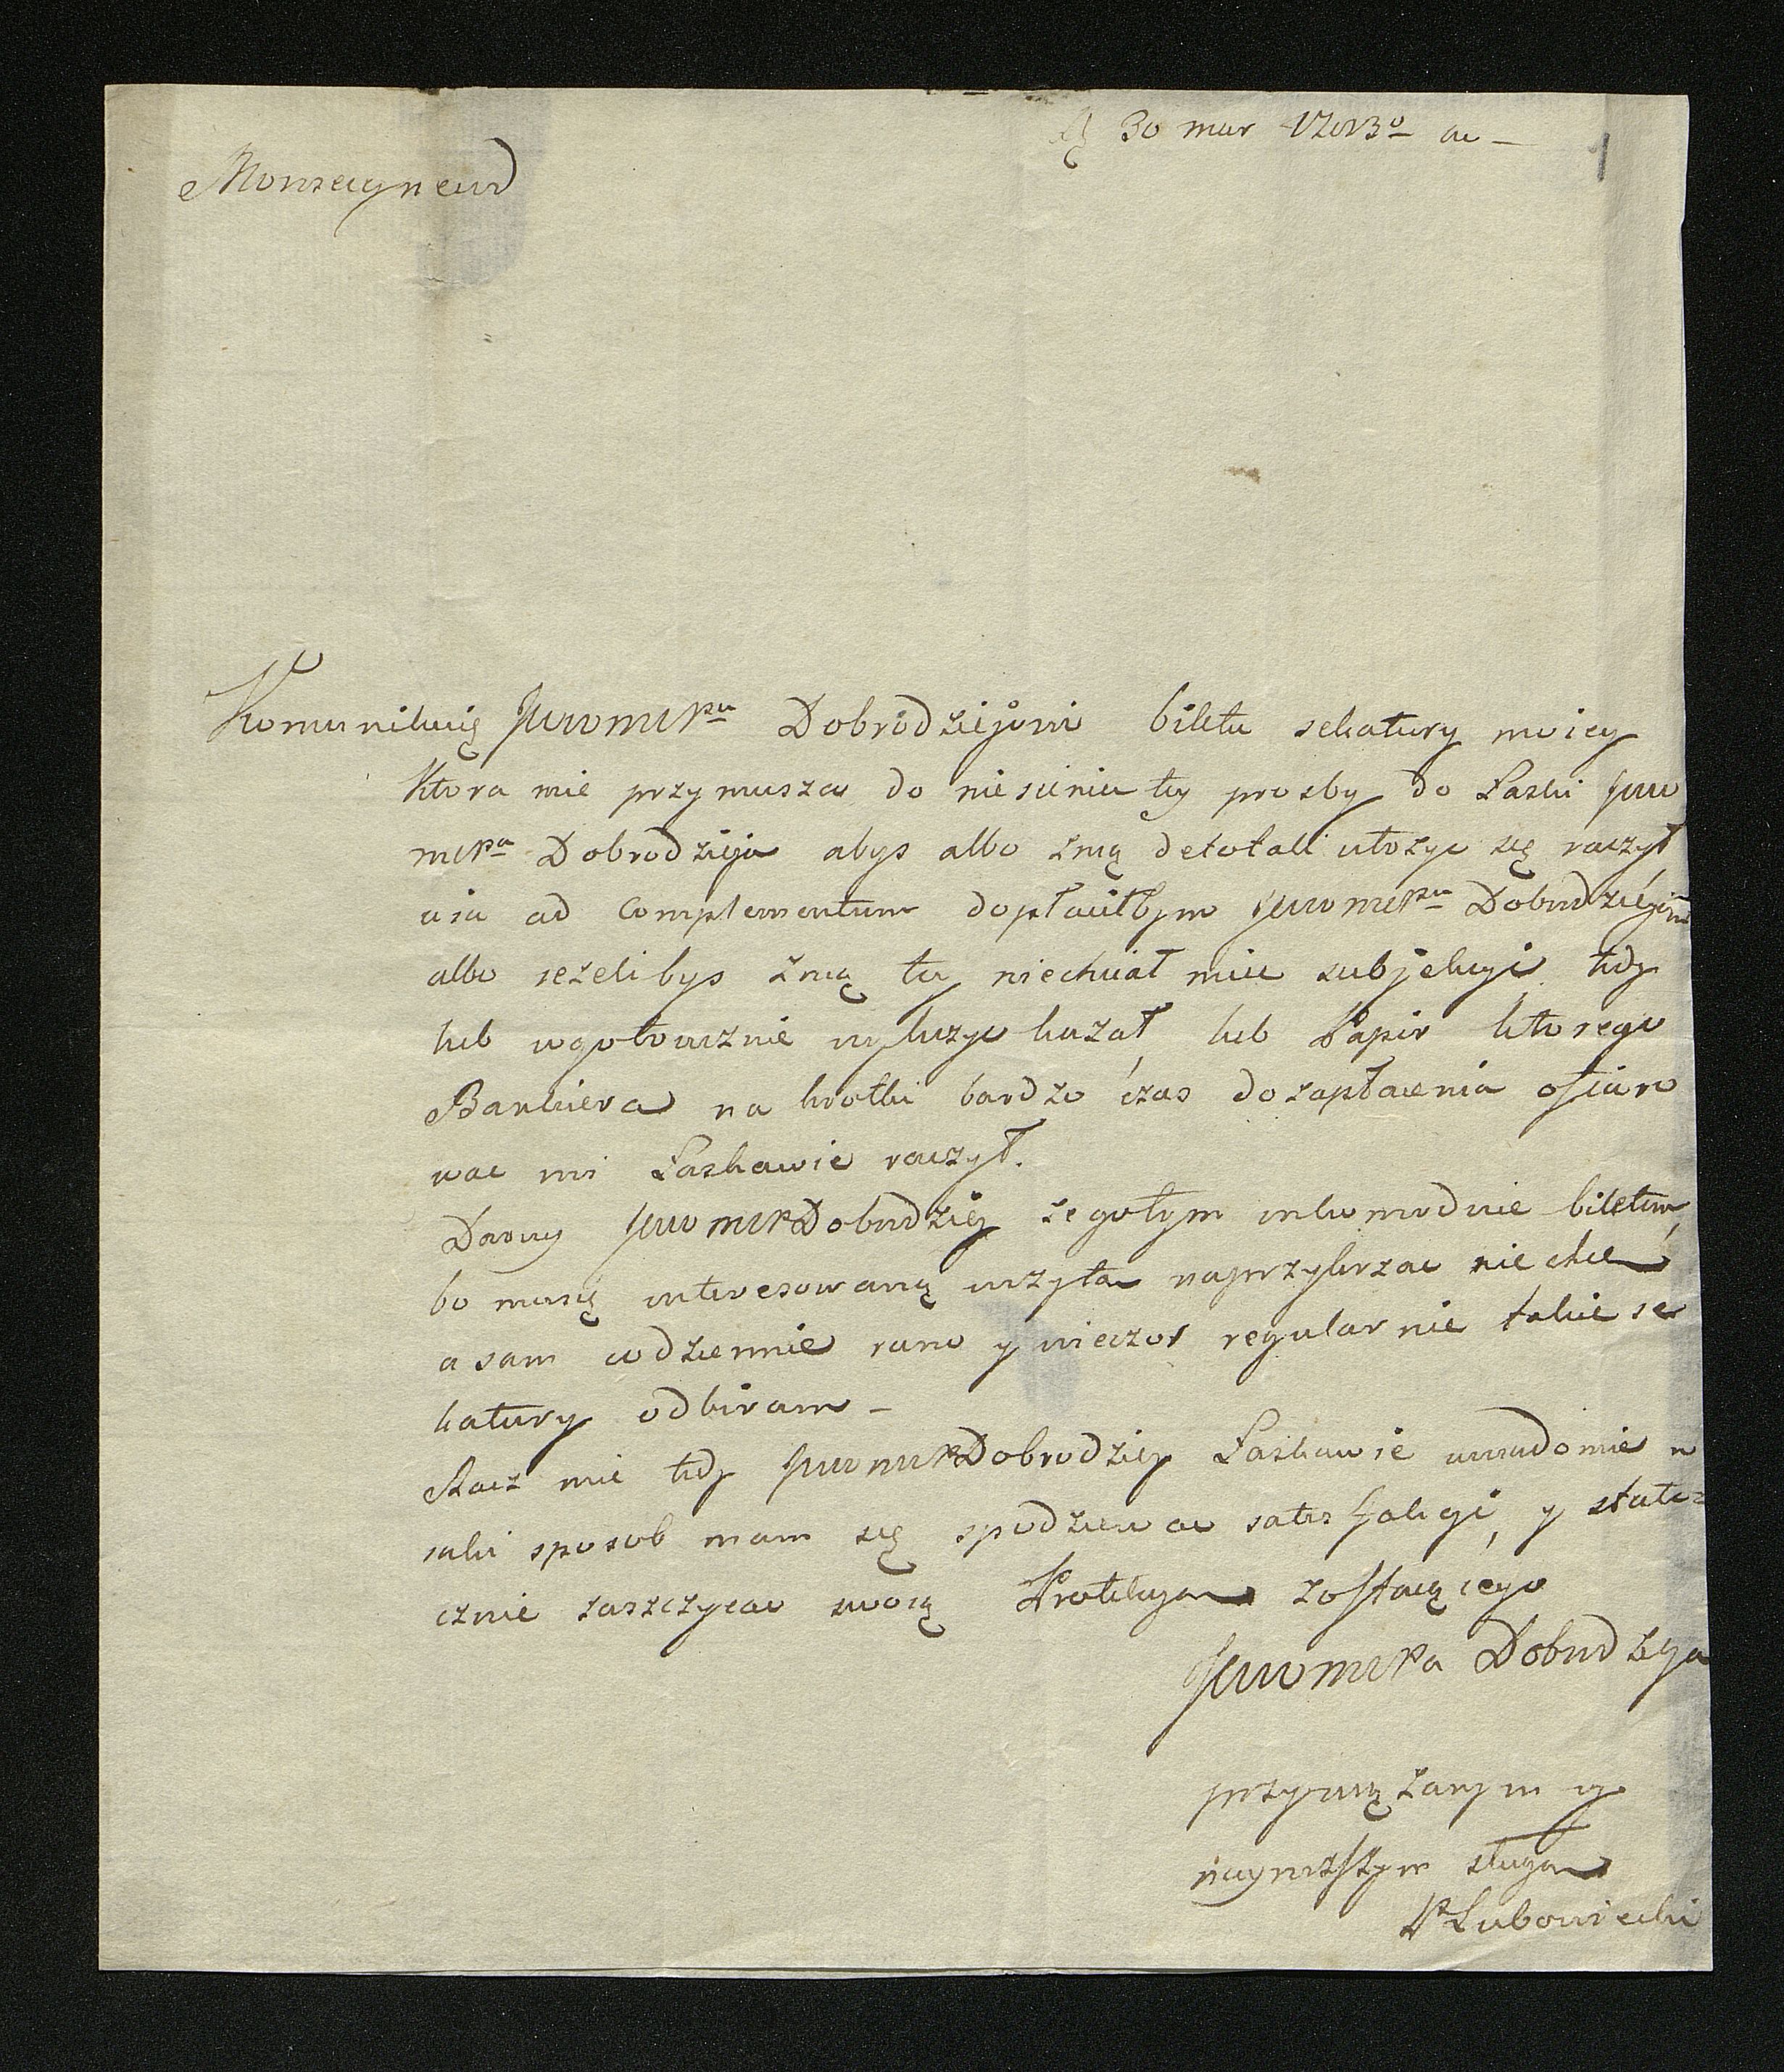 30 mar
1
Monseigneur
Komunikuię JWWMCPu Dobrodziejowi bileta sekatury moiey
Ktora mie przymusza do niesienia tey prosby do Łaski JWW
MCPa Dobrodzieja abys albo zmą detotali ułożyc się raczył
aia ad Complementum dopłaciłbym JWWMCPu Dobrodziejowi
albo iezelibys zmą tey niechciał miec subjekcyi tedy
lub wgotowiznie wyliczyc kazał, lub Papir ktorego
Bankiera na krotki bardzo czas dozapłacenia ofiaro
wac mi Łaskawie raczył.
Daruy JWWMCPDobrodziey zegołym inkomoduie biletem,
bo moią interesowaną wizytą naprzykrzac niechcę
a sam codziennie rano y wieczor regularnie takie se
katury odbiram -
Racz mie tedy JWWMCPDobrodziey Łaskawie uwiadomic w
iaki sposob mam się spodziewac satisfakcyi, y state=
cznie zaszczycac swoią Protekcyą zostaiącego
JWWMCPa Dobrodzieja
przywiązanym y
nayniższym sługą
P Lubowiecki